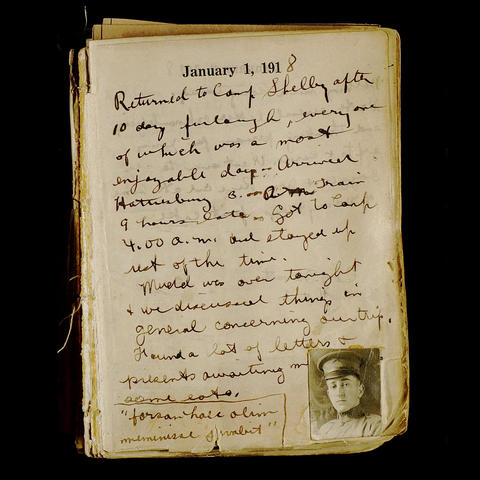 January 1, 1918
Returned to Camp Shelby after
10 day furlough, everyone
of which was a most
enjoyable day. Arrived
Hattiesburg 3. Train
9 hours late. Got to Camp
4.00 a.m. and stayed up
rest of the time.
Mudd was over tonight
& we discussed things in
general concerning our trip.
Found a lot of letters &
presents awaiting
some eats.
"forsan haec olim
meminisse juvabit"